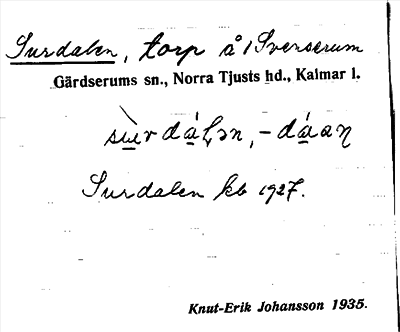 Surdalen, torp å 1 Sverserum
Gärdserums sn., Norra Tjusts hd., Kalmar l.
sùrdáłən, -dáaƞ
Surdalen kb 1927.
Knut-Erik Johansson 1935.